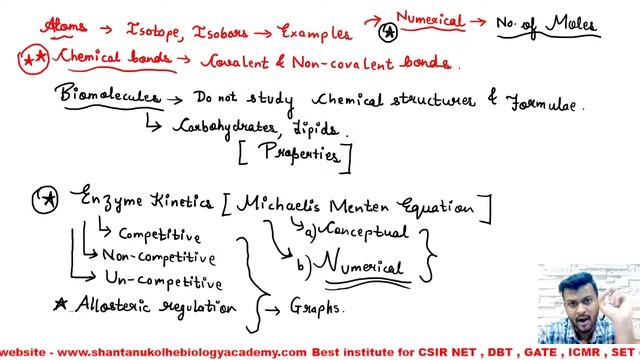 Atoms → Isotope, Isobars → Examples → Numerical → No. of Moles
Chemical bonds → Covalent & Non-covalent bonds.
Biomolecules → Do not study Chemical structures & Formulae.
↳ Carbohydrates, Lipids.
[Properties]
Enzyme Kinetics [Michaelis Menten Equation]
Competitive a) Conceptual
Non-competitive b) Numerical
Un-competitive
★ Allosteric regulation → Graphs.
website - www.shantanukolhebiologyacademy.com Best institute for CSIR NET , DBT , GATE , ICMR , SET